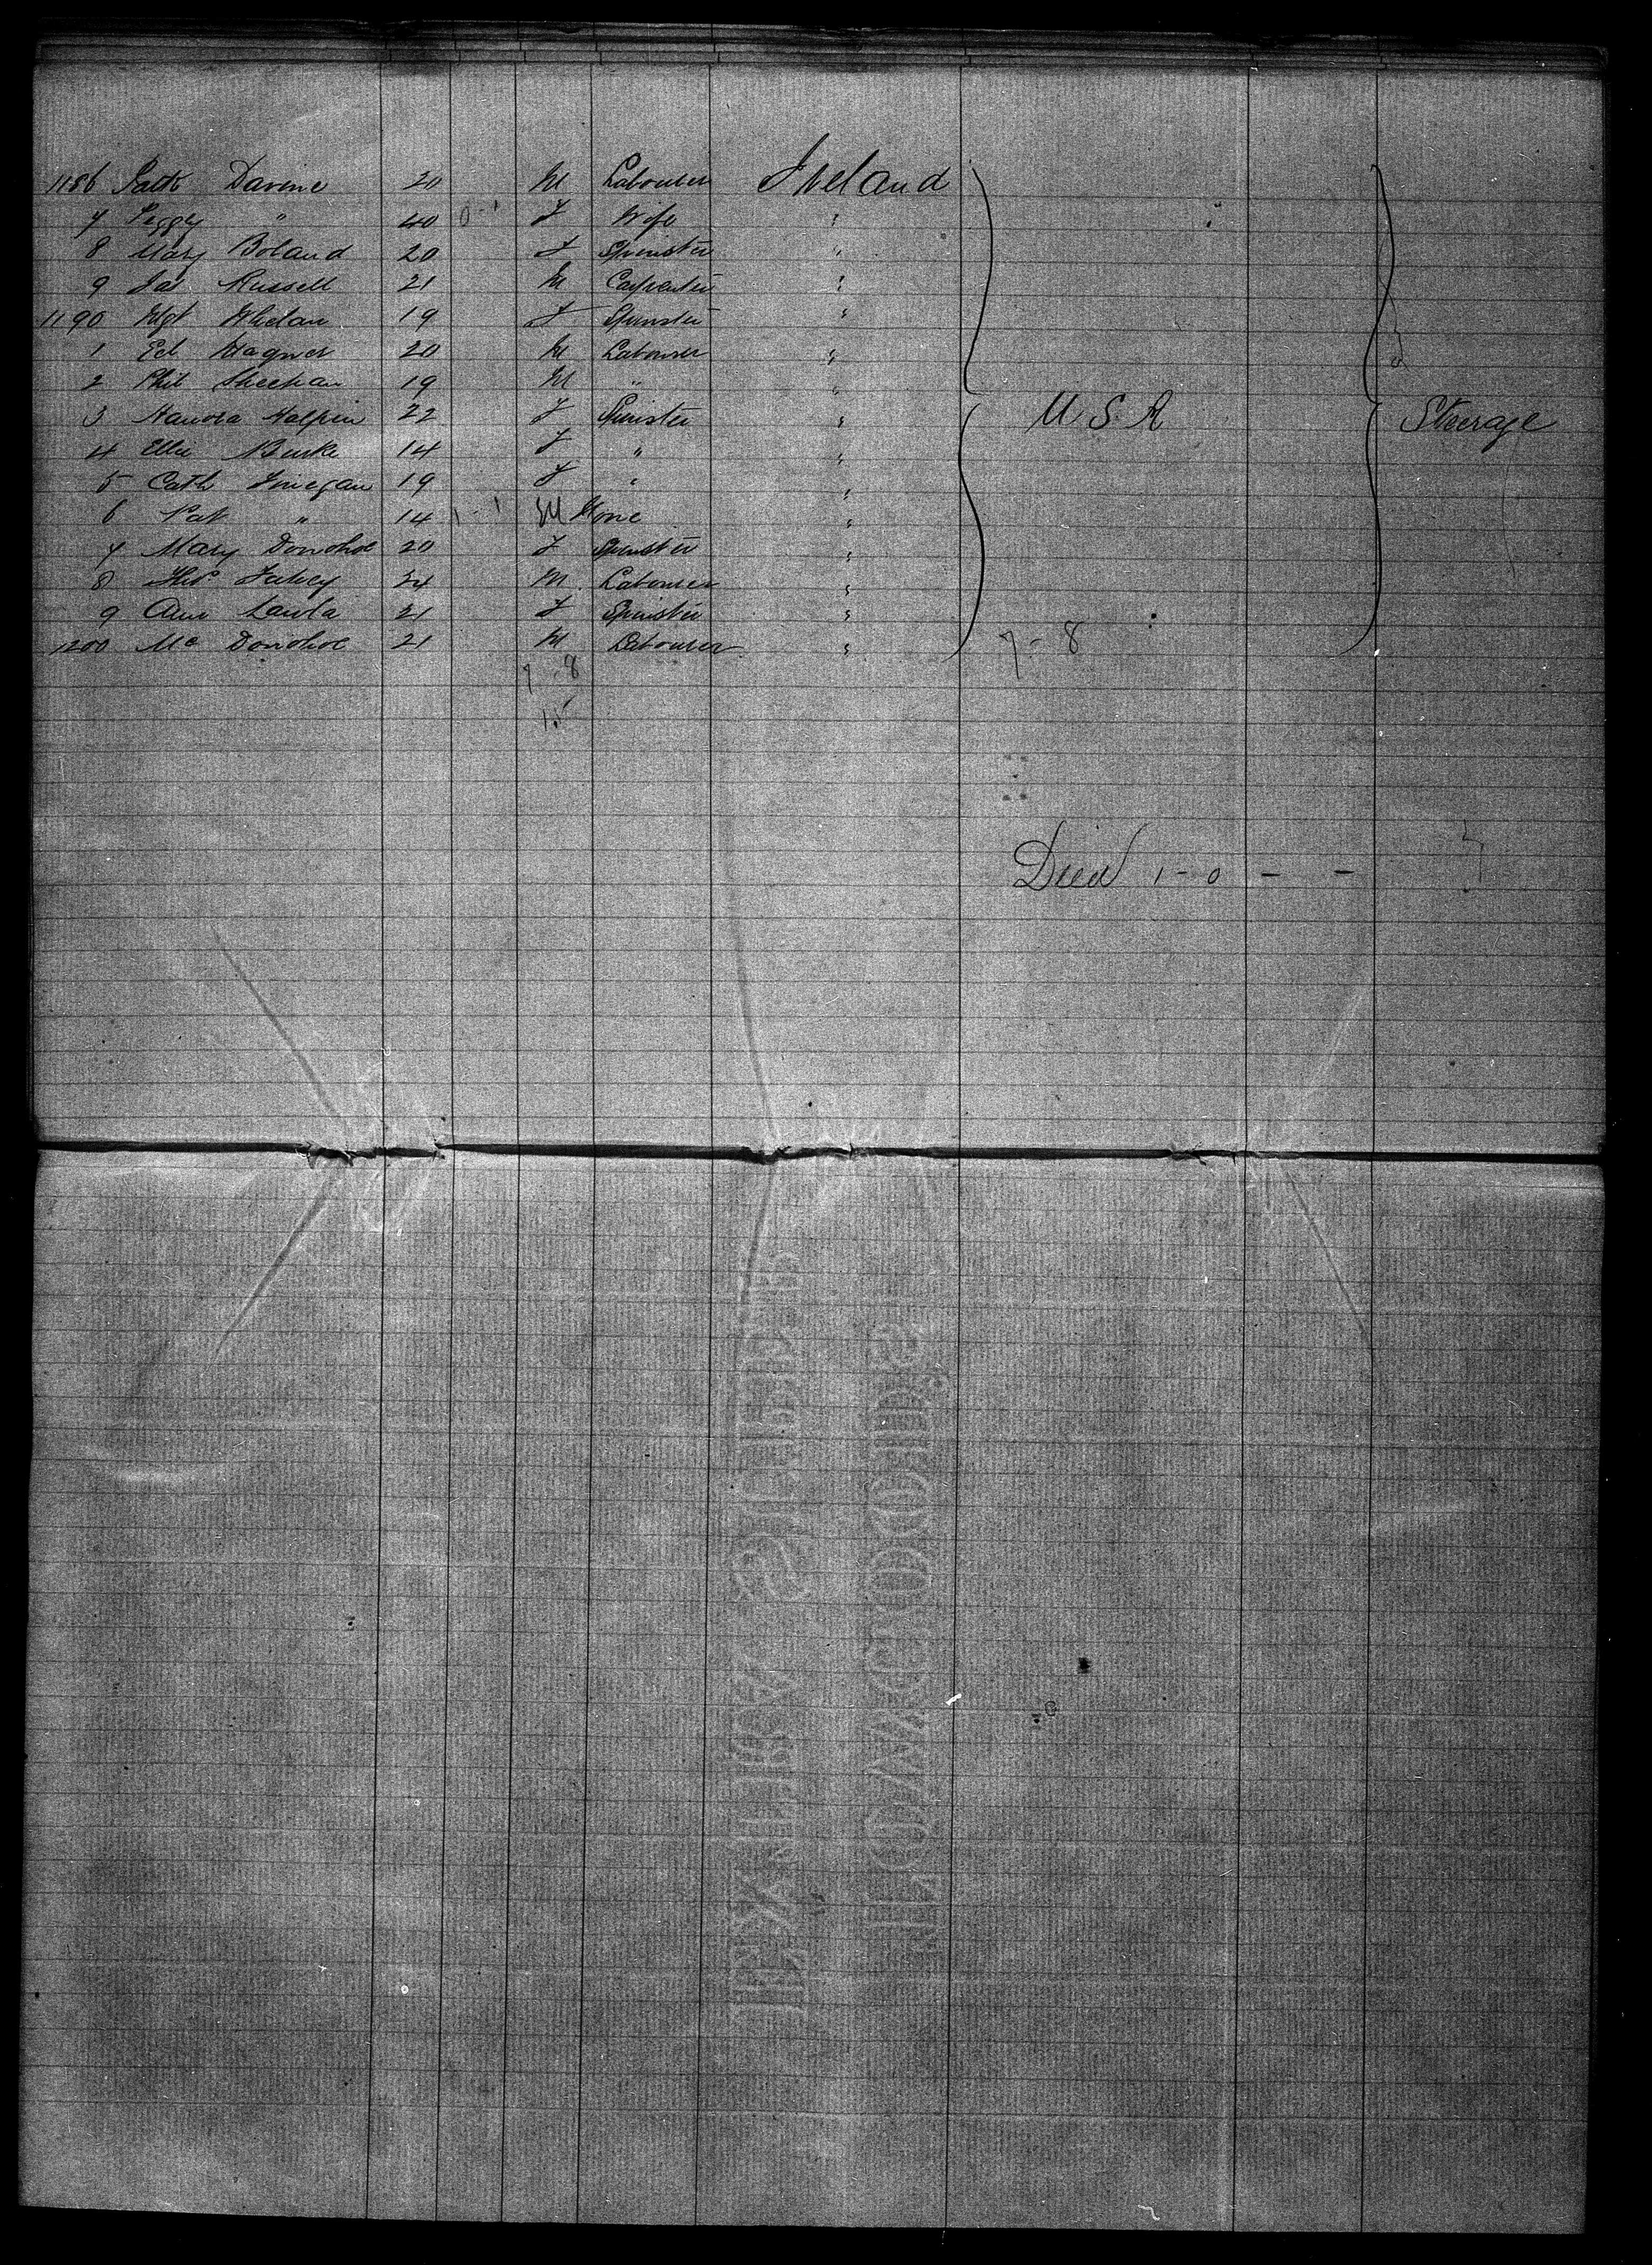 1186 Patk Davine 20 M Labourer Ireland
7 Peggy " 40 0-1 F Wife "
8 Mary Boland 20 F Spinster "
9 Jas Russell 21 M Carpenter "
1190 Mgt Whelan 19 F Spinster "
1 Ed Wagner 20 M Labourer "
2 Phil Sheehan 19 M " "
3 Hanora Halpin 22 F Spinster " U S A Steerage
4 Ellie Burke 14 F " "
5 Cath Finegan 19 F " "
6 Pat " 14 1-1 M None "
7 Mary Donohoe 20 F Spinster "
8 Thos Fahey 24 M Labourer "
9 Ann 21 F Spinster "
1200 Mc Donohoe 21 M Labourer " 7-8
7-8
15
Died 1-0 - -